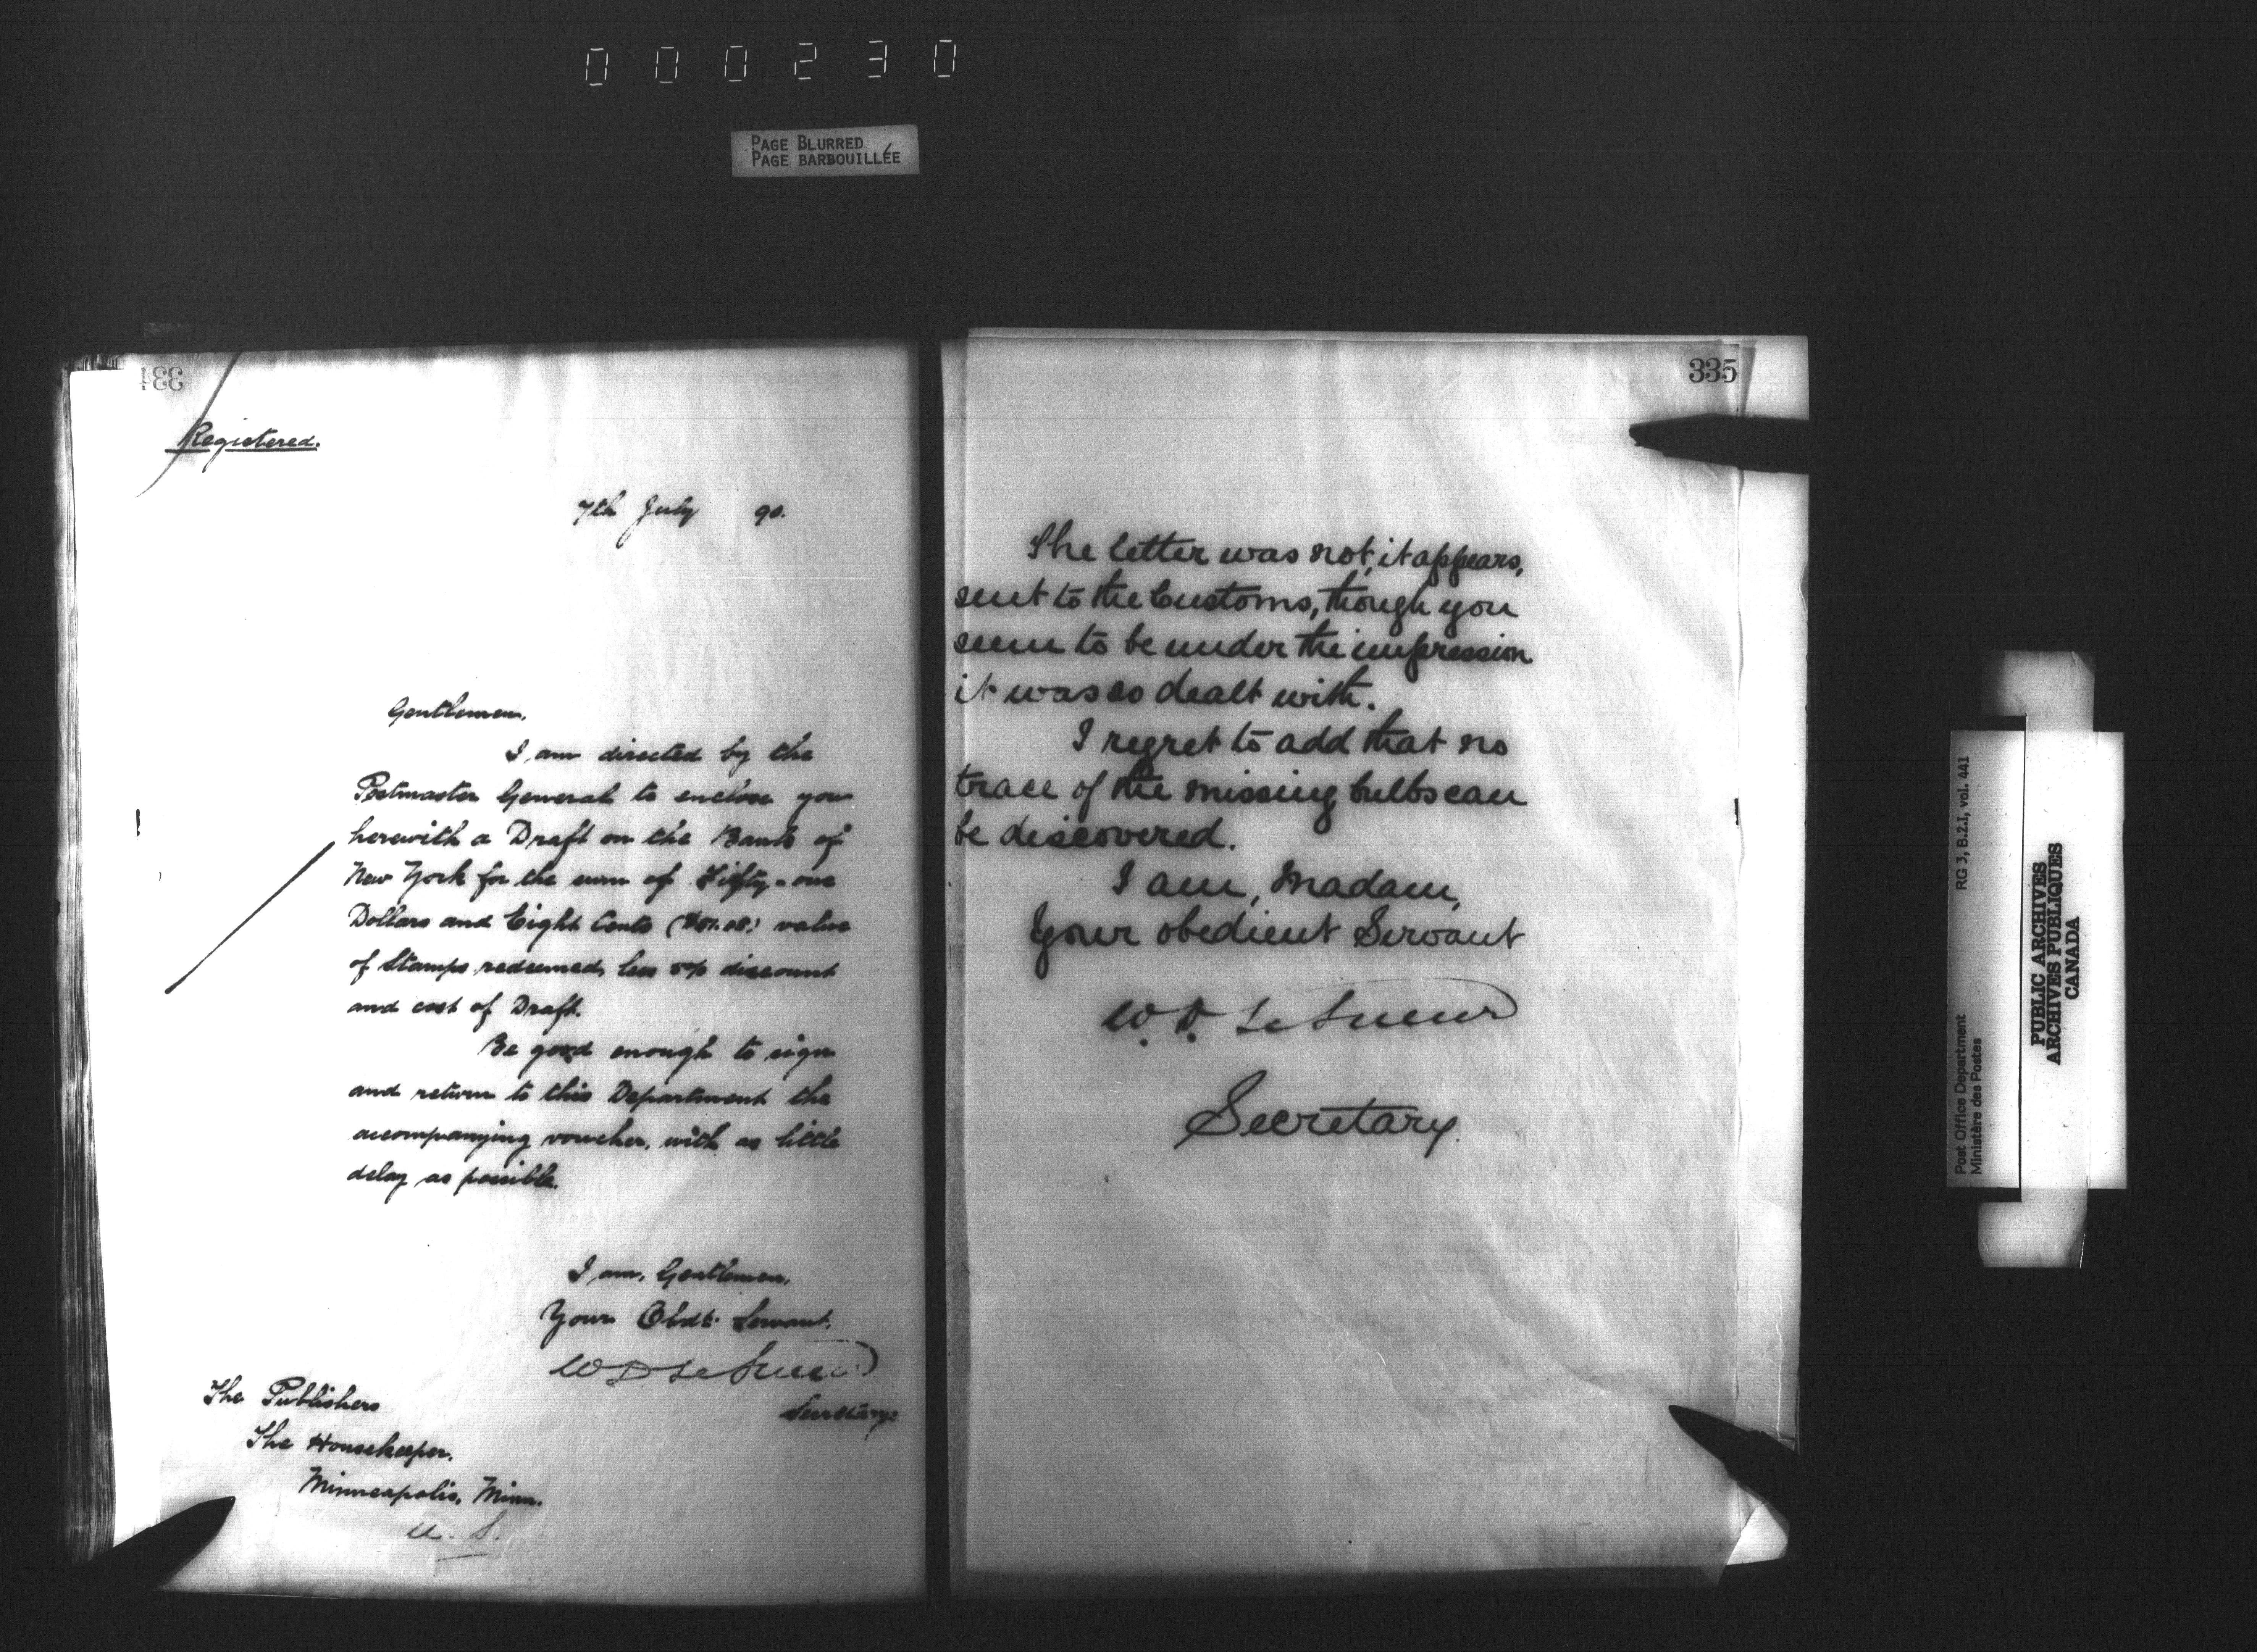 000230
PAGE BLURRED
PAGE BARBOUILLÉE
334
Registered.
7th July 90.
Gentlemen,
I am directed by the
Postmaster General to enclose you
herewith a Draft on the Bank of
New York for the sum of Fifty-one
Dollars and Eight Cents ($51.08) value
of Stamps redeemed, less 5% discount
and cost of Draft.
Be good enough to sign
and return to this Department the
accompanying voucher, with as little
delay as possible.
I am, Gentlemen,
Your Obdt. Servant,
W D LeSueur
Secretary.
The Publishers
The Housekeeper,
Minneapolis, Minn.
U. S.
335
The letter was not, it appears,
sent to the Customs, though you
seem to be under the impression
it was so dealt with.
I regret to add that no
trace of the missing bulbs can
be discovered.
I am, Madam,
Your obedient Servant
W. D. LeSueur
Secretary.
RG 3, B.2.I, vol. 441
Post Office Department
Ministère des Postes
PUBLIC ARCHIVES
ARCHIVES PUBLIQUES
CANADA